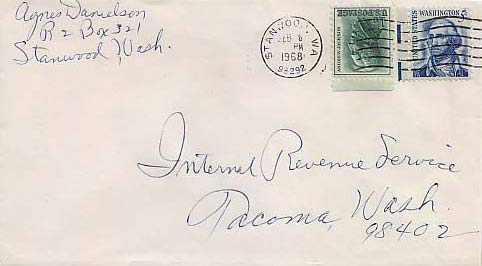 Agnes Danielson
R 2 Box 321
Stanwood, Wash.
STANWOOD, WA
FEB 6
PM
1968
98292
U.S. POSTAGE
ANDREW JACKSON
WASHINGTON 5c
UNITED STATES
Internal Revenue Service
Tacoma, Wash.
98402